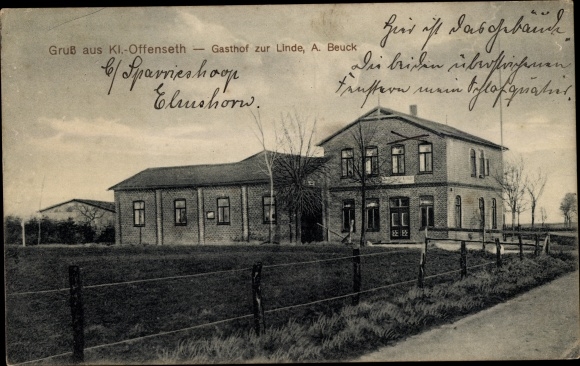 Gruß aus Kl.-Offenseth — Gasthof zur Linde, A. Beuck
b/ Sparrieshoop
Elmshorn.
Hier ist das Gebäude.
Die beiden überstrichenen
Fenstern mein Schlafquatier.